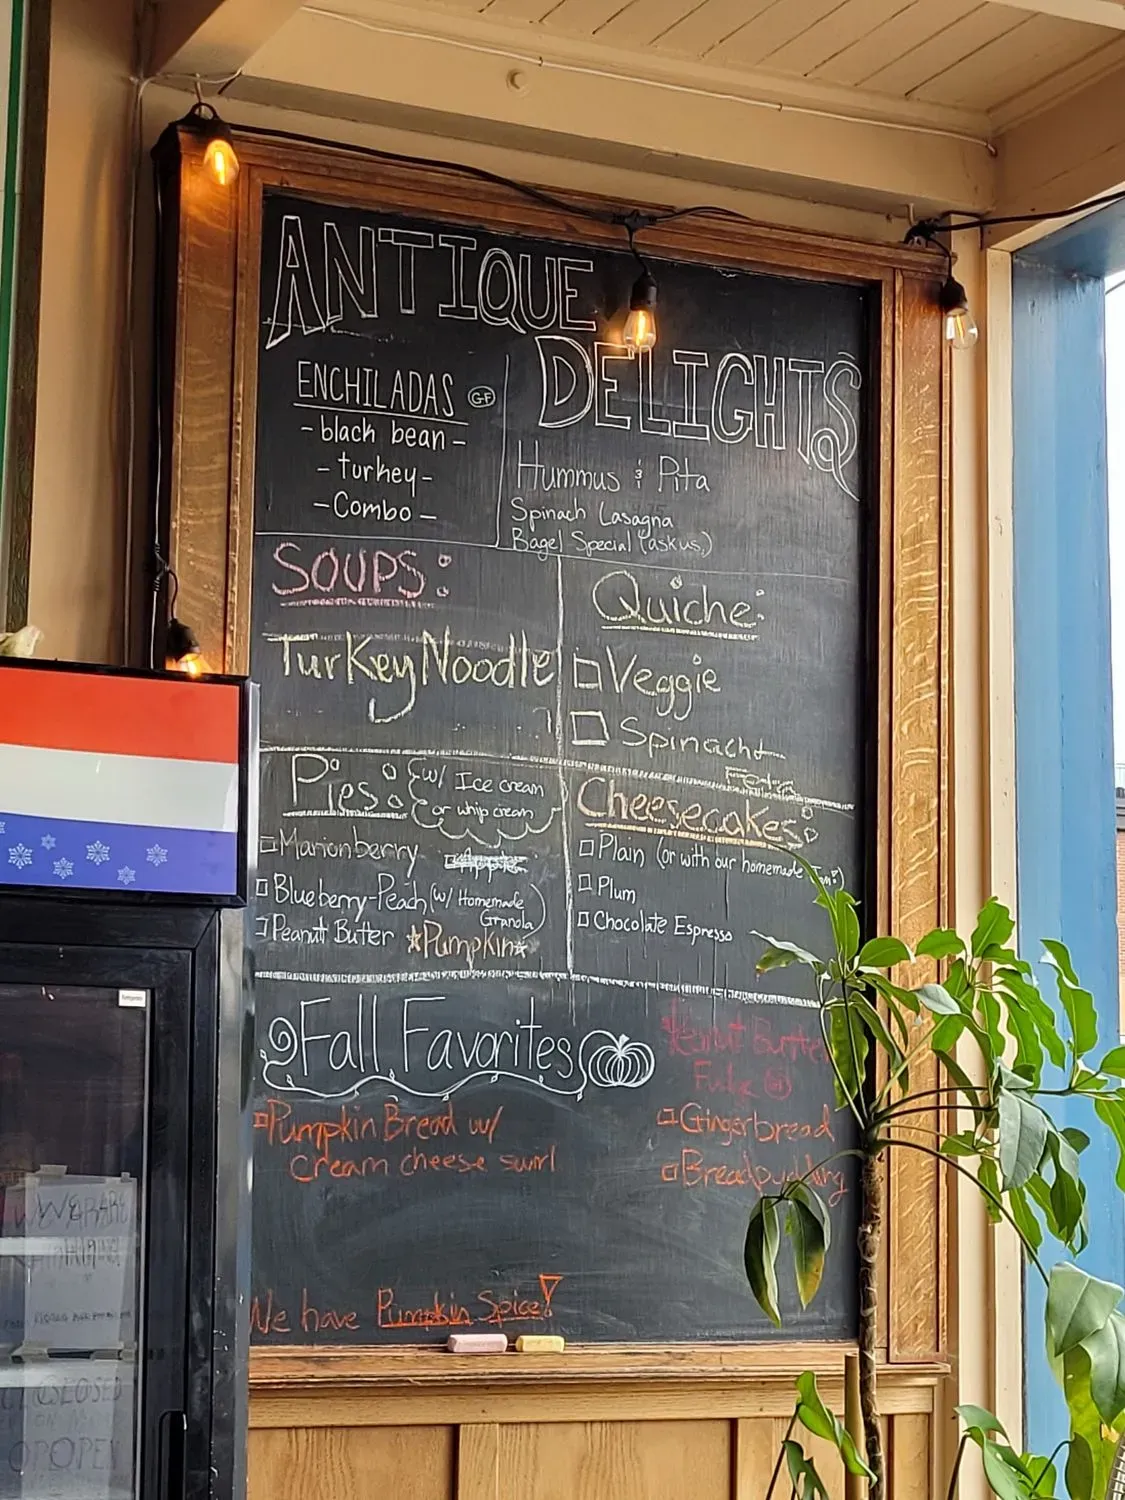 ANTIQUE
DELIGHTS
ENCHILADAS GF
- black bean -
- turkey -
- Combo -
Hummus & Pita
Spinach Lasagna
Bagel Special (ask us)
SOUPS:
Turkey Noodle
Quiche:
Veggie
Spinach+
Feta
Pies: w/ Ice cream
or whip cream
Marionberry
Blueberry-Peach (w/ Homemade
Granola)
Peanut Butter *Pumpkin*
Cheesecakes:
Plain (or with our homemade Jam!)
Plum
Chocolate Espresso
Fall Favorites
Pumpkin Bread w/
cream cheese swirl
Peanut Butter
Fudge GF
Gingerbread
Breadpudding
We have Pumpkin Spice!